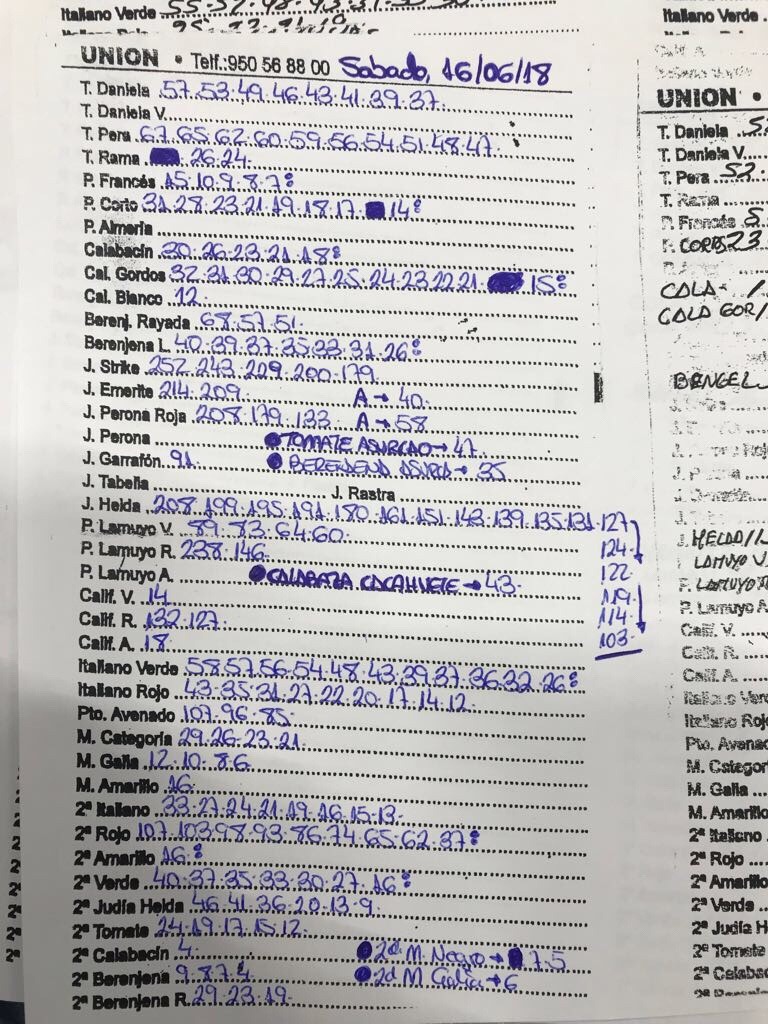 Italiano Verde
UNION • Telf.:950 56 88 00 Sabado, 16/06/18
T. Daniela 57.53.49.46.43.41.39.37.
T. Daniela V.
T. Pera 67.65.62.60.59.56.54.51.48.47.
T. Rama 26.24.
P. Francés 15.10.9.8.7
P. Corto 31.28.23.21.19.18.17. 14
P. Almería
Calabacín 30.26.23.21.18
Cal. Gordos 32.31.30.29.27.25.24.23.22.21. 15
Cal. Blanco 12.
Berenj. Rayada 68.57.51.
Berenjena L. 40.39.37.35.33.31.26
J. Strike 252.243.229.200.179.
J. Emerite 214.209. A → 40.
J. Perona Roja 208.179.133. A → 58
J. Perona TOMATE ASURCAO → 47.
J. Garrafón 91. BERENJENA ASURCA → 35
J. Tabella J. Rastra
J. Helda 208.199.195.191.180.161.151.143.139.135.131.127
124
122
119
114
103
P. Lamuyo V. 89.83.64.60.
P. Lamuyo R. 238.146.
P. Lamuyo A. CALABAZA CACAHUETE → 43.
Calif. V. 14
Calif. R. 132.127.
Calif. A. 18.
Italiano Verde 58.57.56.54.48.43.39.37.36.32.26
Italiano Rojo 43.35.31.27.22.20.17.14.12.
Pto. Avenado 107.96.85.
M. Categoría 29.26.23.21.
M. Galia 12.10.8.6.
M. Amarillo 16.
2ª Italiano 33.27.24.21.19.16.15.13.
2ª Rojo 107.103.98.93.86.74.65.62.37
2ª Amarillo 16
2ª Verde 40.37.35.33.30.27.16
2ª Judía Helda 46.41.36.20.13.9.
2ª Tomate 24.19.17.15.12.
2ª Calabacín 4. 2ª M. Negro → 7.5
2ª Berenjena 9.8.7.4. 2ª M Galia → 6
2ª Berenjena R. 29.23.19.
Italiano Verde
UNION •
T. Daniela
T. Daniela V.
T. Pera 52.
T. Rama
P. Francés
CORTO 23
CALA
CALA GOR
BERNGEL
HELDA
LAMUYO V
LAMUYO R
P. Lamuyo A
Calif. V.
Calif. R.
Calif. A.
Italiano Verd
Italiano Rojo
Pto. Avenad
M. Categor
M. Galia
M. Amarillo
2ª Italiano
2ª Rojo
2ª Amarill
2ª Verde
2ª Judía H
2ª Tomate
2ª Calabac